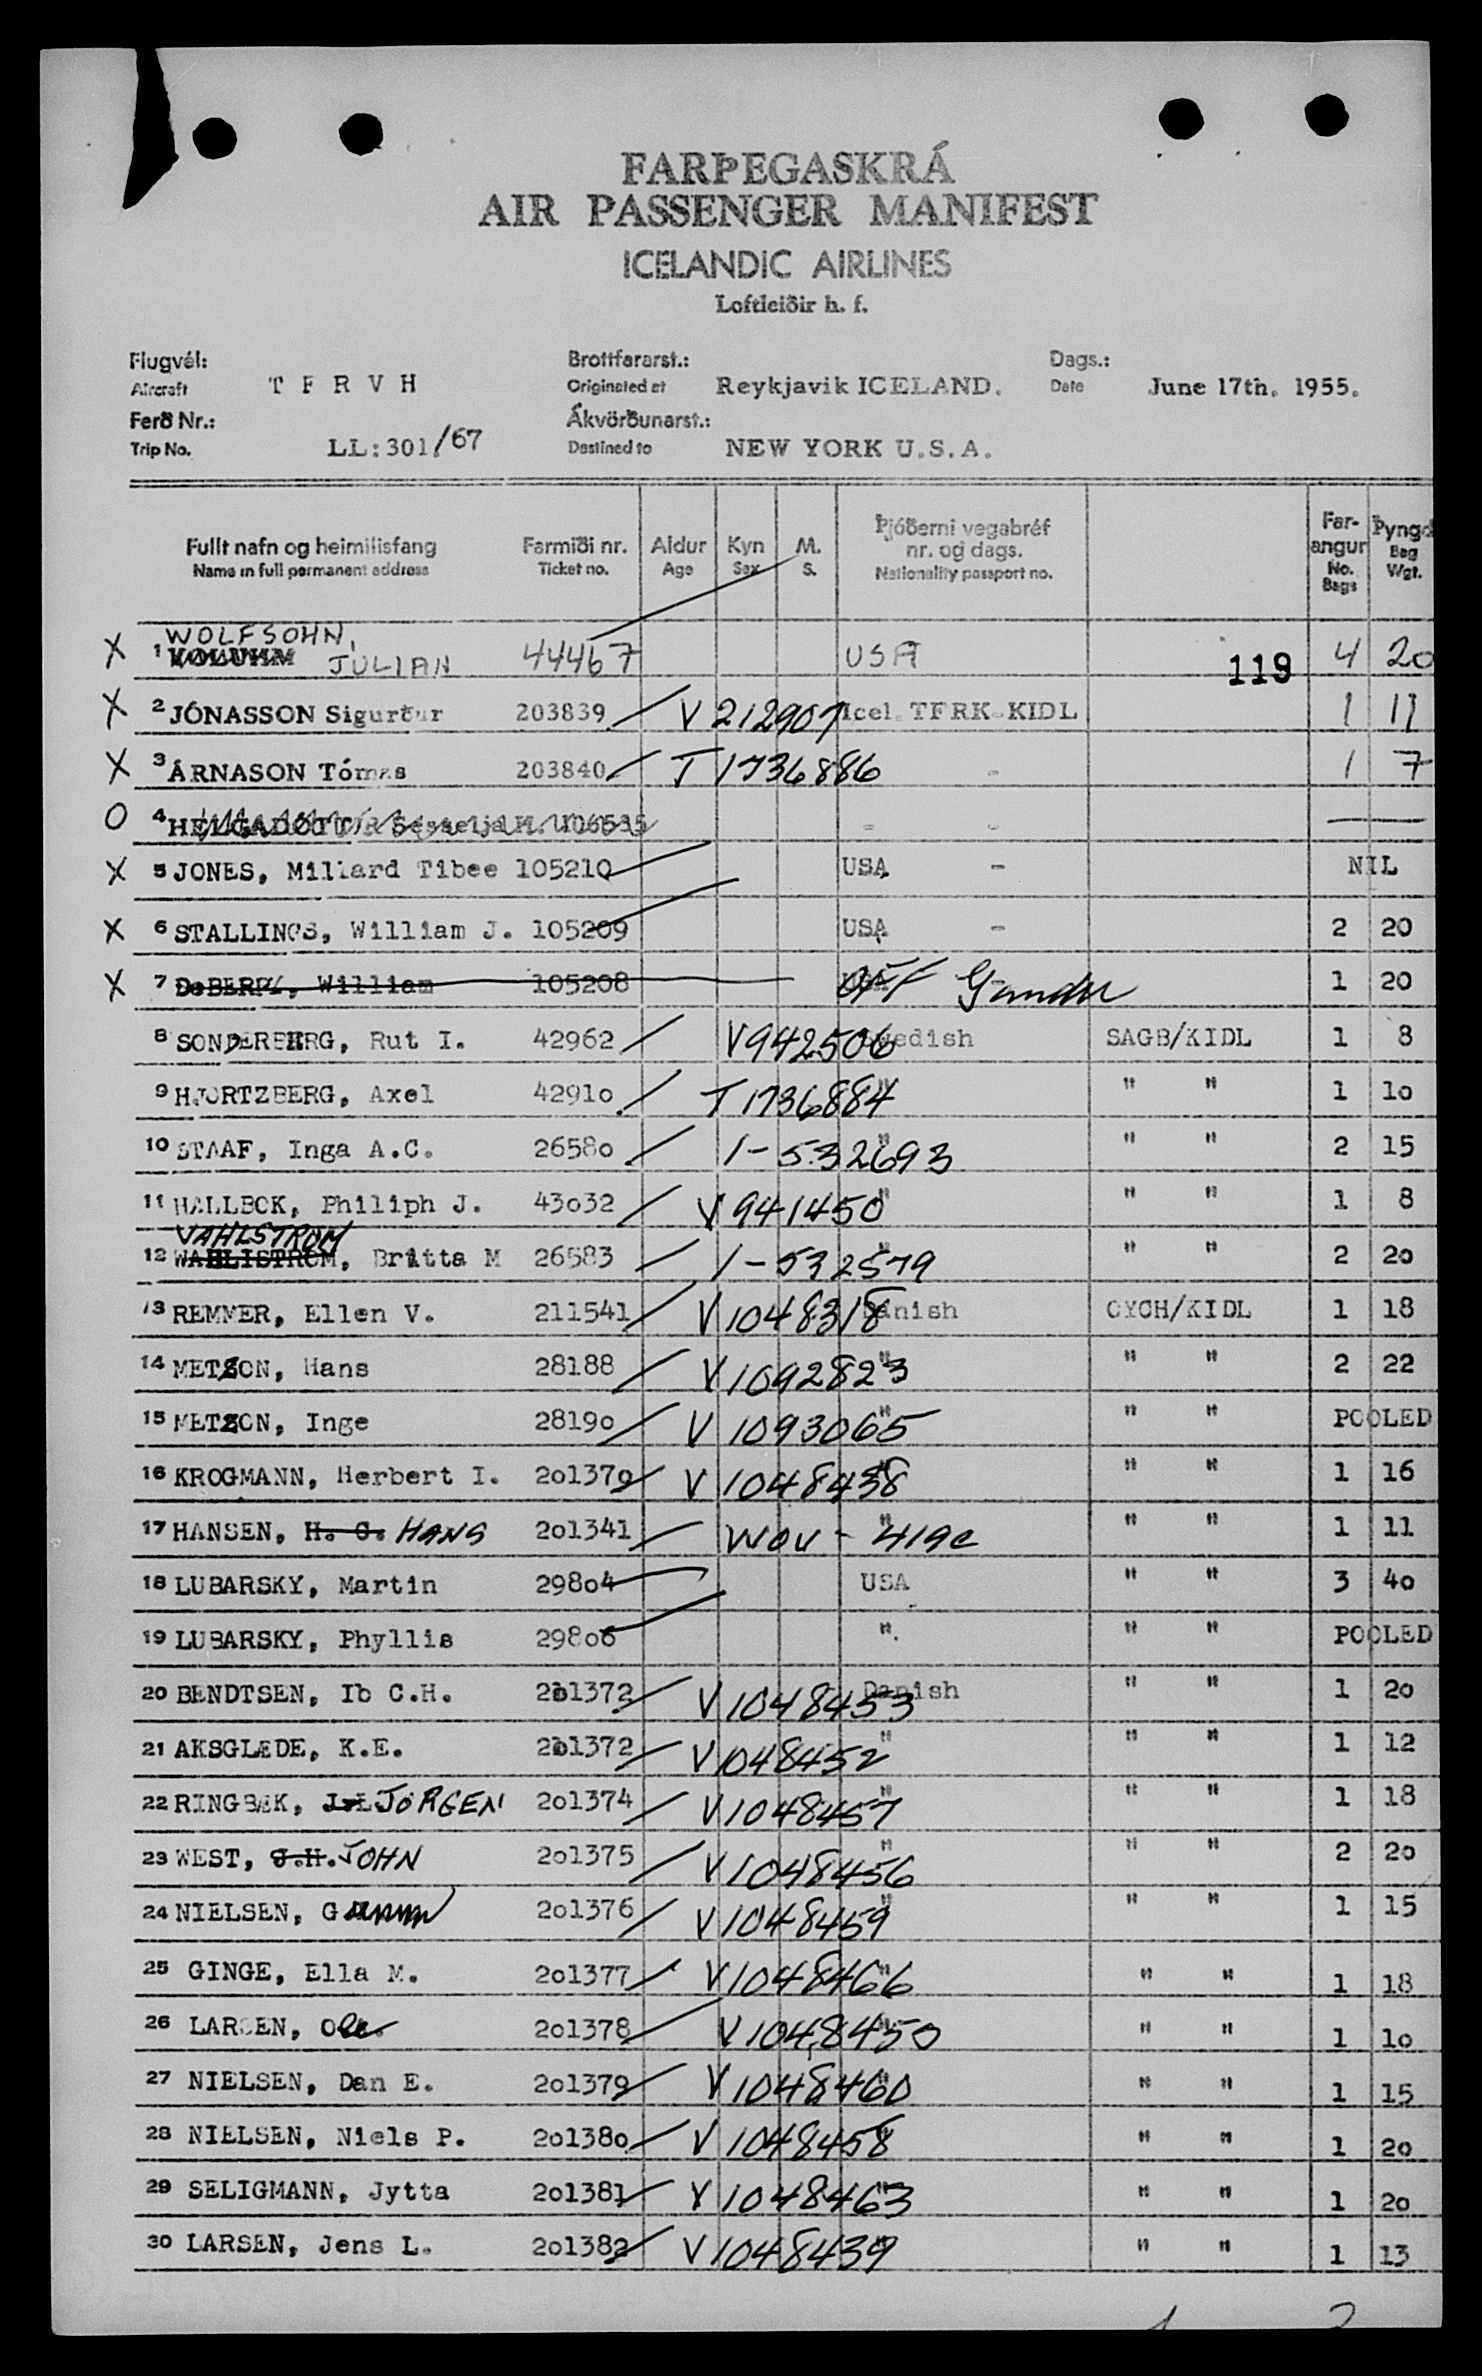 FARÞEGASKRÁ
AIR PASSENGER MANIFEST
ICELANDIC AIRLINES
Loftleiðir h. f.
Flugvél: Brottfararst.: Dags.:
Aircraft T F R V H Originated at Reykjavik ICELAND. Date June 17th. 1955.
Ferð Nr.: Ákvörðunarst.:
Trip No. LL:301/67 Destined to NEW YORK U.S.A.
Fullt nafn og heimilisfang Farmiði nr. Aldur Kyn M. Þjóðerni vegabréf nr. og dags. Far-angur Þyngd
Name in full permanent address Ticket no. Age Sex S. Nationality passport no. No. Bags Bag Wgt.
X 1 WOLFSOHN, JULIAN 44467 USA 119 4 20
X 2 JÓNASSON Sigurður 203839 V 212907 Icel. TFRK-KIDL 1 11
X 3 ÁRNASON Tómas 203840 T 1736886 - 1 7
O 4 HELGADÓTTIR Sesselja - - —
X 5 JONES, Millard Tibee 105210 USA - NIL
X 6 STALLINGS, William J. 105209 USA - 2 20
X 7 DeBERRY, William 105208 OFF Gander 1 20
8 SONDERBERG, Rut I. 42962 V942506 Swedish SAGB/KIDL 1 8
9 HJORTZBERG, Axel 4291o T 1736884 " " " 1 1o
10 STAAF, Inga A.C. 2658o 1-532693 " " " 2 15
11 HALLBOK, Philiph J. 43o32 V 941450 " " " 1 8
VAHLSTROM
12 WAHLISTROM, Britta M 26583 1-532579 " " " 2 2o
13 REMMER, Ellen V. 211541 V 1048318 Danish OYCH/KIDL 1 18
14 METZON, Hans 28188 V 1092823 " " " 2 22
15 METZON, Inge 2819o V 1093065 " " " POOLED
16 KROGMANN, Herbert I. 2o1370 V 1048438 " " " 1 16
17 HANSEN, H. C. HANS 2o1341 WOV - 419c " " " 1 11
18 LUBARSKY, Martin 298o4 USA " " 3 4o
19 LUBARSKY, Phyllis 298o6 ". " " POOLED
20 BENDTSEN, Ib C.H. 2o1372 V 1048453 Danish " " 1 2o
21 AKSGLÆDE, K.E. 2o1372 V1048452 " " " 1 12
22 RINGBÆK, JORGEN 2o1374 V1048457 " " " 1 18
23 WEST, J.H. JOHN 2o1375 V 1048456 " " " 2 2o
24 NIELSEN, 2o1376 V 1048459 " " " 1 15
25 GINGE, Ella M. 2o1377 V1048466 " " " 1 18
26 LARSEN, Ole 2o1378 V1048450 " " " 1 1o
27 NIELSEN, Dan E. 2o1379 V 1048460 " " " 1 15
28 NIELSEN, Niels P. 2o138o V 1048458 " " " 1 2o
29 SELIGMANN, Jytta 2o1381 V 1048463 " " " 1 2o
30 LARSEN, Jens L. 2o1382 V 1048439 " " " 1 13